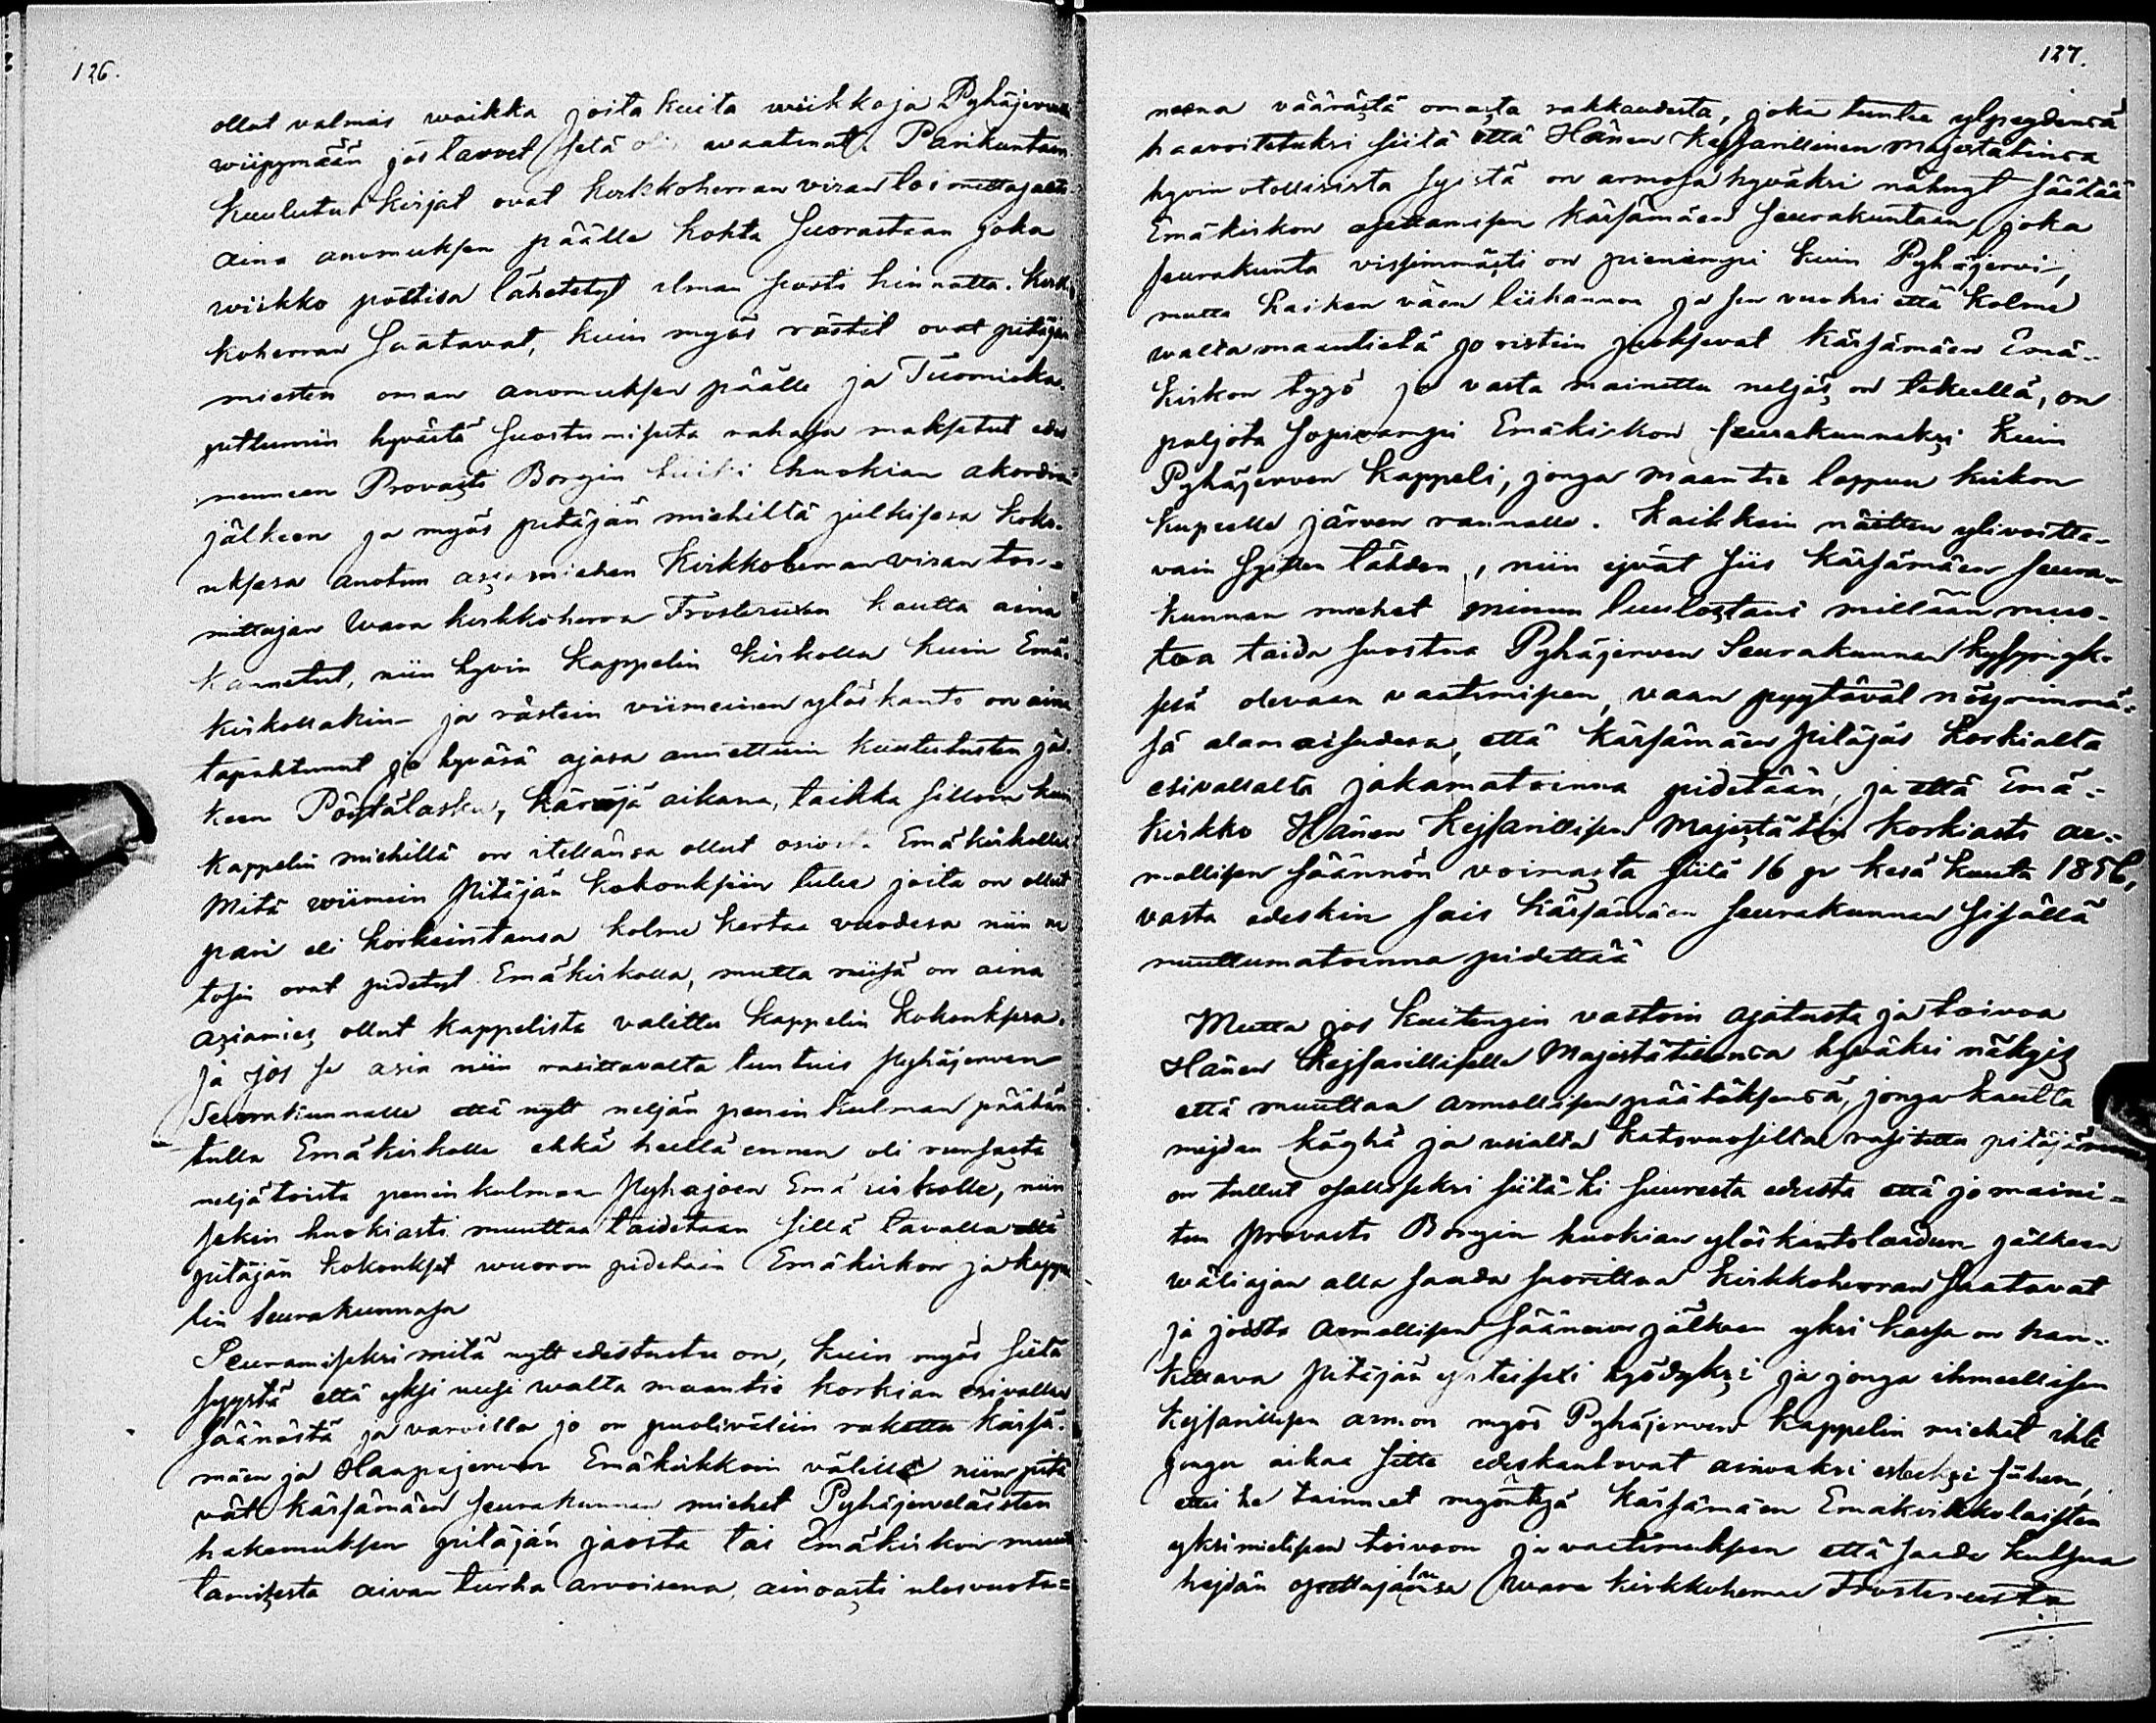 126.
ollut valmis waikka joita kuita wiikkoja Pyhäjerve
wiipymään jos tarvet sitä olis waatinut. Parikuntain
kuulutus kirjat ovat kirkkoherran viran toimittajalta
aina anomuksen päälle kohta suorastaan joka
wiikko postisa lähetetyt ilman posti hinnatta. Kirk
koherran saatavat, kuin myös rästit ovat pitäjän
miesten oman anomuksen päälle ja Tuomioka-
pittumin hyvästä suostumisesta rahasa maksetut ede
menneen Provasti Borgin huokian akordin
jälkeen ja myös pitäjän miehiltä julkisesa koko-
uksesa anotun asiamiehen Kirkkoherran viran toi-
mittajan Wara kirkkoherra Frosteruxen kautta aina
kannetut, niin hyvin Kappelin kirkolla kuin Emä
kirkollakin – ja rästein viimeinen ylöskanto on aina
tapahtunut jo hyväsä ajasa annettuin kuulutusten jäl
keen Pöytälasku, käräjä aikana, taikka silloin kuin
kappelin miehillä on itellänsä ollut asioita Emäkirkolla
Mitä wiimein Pitäjän kokouksiin tulee joita on ollut
pari eli korkeintansa kolme kertaa vuodesa niin ne
tosin ovat pidetyt Emäkirkolla, mutta niisä on aina
asiamies ollut kappelista valittu kappelin kokouksesa.
ja jos se asia niin rasittavalta tuntuis Pyhäjerven
Seurakunnalle että nytt neljän penin kulman päähän
tulla Emäkirkolle ehkä heillä ennen oli runsasta
neljätoista peninkulmaa Pyhäjoen Emä kirkolle, niin
sekin huokiasti muuttaa taidetaan sillä tavalla että
pitäjän kokoukset wuoron pidetäin Emäkirkon ja kappe
lin Seurakunnasa
Seuramiseksi mitä nytt edestuotu on, kuin myös siitä
syystä että yksi uusi walta maantie korkian esivallan
säänöstä ja varoilla jo on puoliväliin rakettu Kärsä-
mäen ja Haapajerven Emäkirkkoin välillä niin pitä
vätt kärsämäen seurakunnan miehet Pyhäjerveläisten
hakemuksen pitäjän jaosta tai Emäkirkon muut
tamisesta aivan turha arvoisena, ainoasti ulosvuota=
127.
neena väärästä omasta rakkaudesta, joka tuntee ylpeydensä
haavoitetuksi siitä että Hänen Kejsarillinen Majestätinsa
hyvin otollisista syistä on armosa hyväksi nähnyt säätää
Emäkirkon asettamisen Kärsämäen seurakuntaan, joka
seurakunta vissimmästi on pienempi kuin Pyhäjervi,
mutta kaiken väen liikannon ja sen vuoksi että kolme
walta maantietä jo ristein juoksevat kärsämäen Emä-
kirkon tygö ja vasta mainittu neljäs on tekeellä, on
paljota sopivampi Emäkirkon seurakunnaksi kuin
Pyhäjerven Kappeli, jonga maantie loppuu kirkon
kupeelle järven rannalle. Kaikkein näitten ylivoitta-
vain syitten tähden, niin ejvät siis kärsämäen seura-
kunnan miehet minun luulostani millään muo-
toa taida suostua Pyhäjerven Seurakunnan kysymyk-
sesä olevaan vaatimiseen, vaan pyytävät nöyrimmä-
sä alamaisudesa, että kärsämäen pitäjäs korkialta
esivallalta jakamatoinna pidetään, ja että Emä-
kirkko Hänen Kejsarillisen Majestätin korkiasti ar-
mollisen säännön voimasta siitä 16 p: kesä kuuta 1856,
vasta edeskin sais kärsämäen seurakunnan sisällä
muuttumatoinna pidettää
Mutta jos kuitengin vastoin ajatusta ja toivoa
Hänen Kejsarilliselle Majestätillensa hyväksi näkyis
että muuttaa armollisen päätöksensä, jonga kautta
mejdän köyhä ja usialta katovuosilta rasitettu pitäjämme
on tullut osalliseksi siitä-ki suuresta edusta että jo maini-
tun Provasti Borgin huokian ylöskantolaadun jälkeen
wäliajan alla saada suorittaa kirkkoherran saatavat
ja joista armollisen säännön jälkeen yksi kassa on han-
kittava Pitäjän yhteiseksi hyödyksi ja jonga ihmeellisen
kejsarillisen armon myös Pyhäjerven kappelin miehet ihte
jongun aikaa sitte edeskantovat arwoksi esteksi siihen,
ettei he tainneet myöntyä kärsämäen Emäkirkkolaisten
yksimielisen toivoon ja vaatimuksen että saada kutsua
hejdän opettajaxensa Wara kirkkoherra Frosterusta